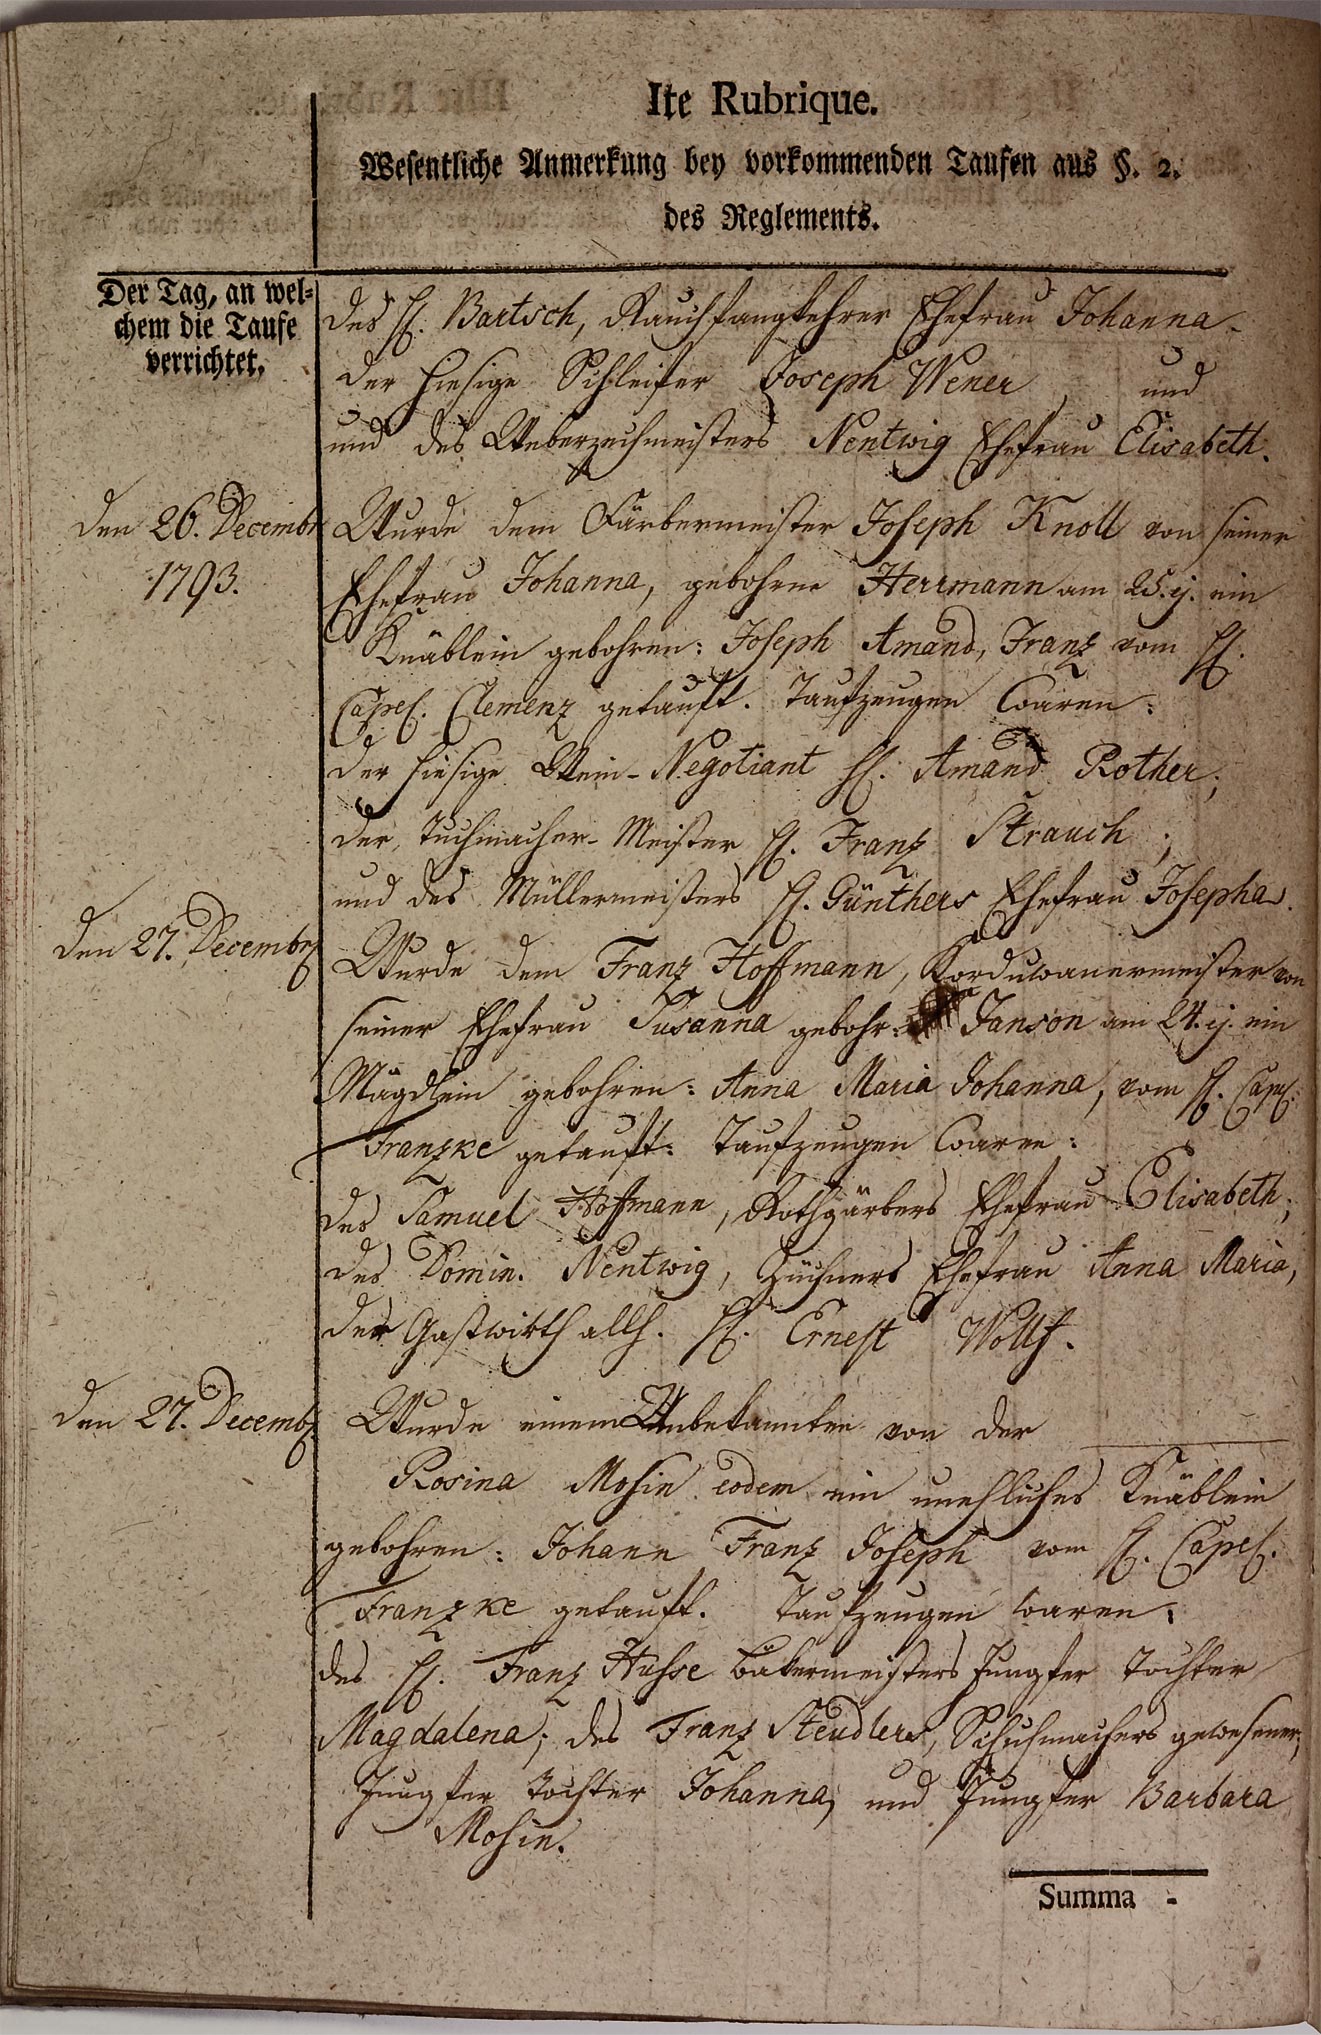 Ite Rubrique.
Wesentliche Anmerkung bey vorkommenden Taufen aus §. 2.
des Reglements.
Der Tag, an wel-
chem die Taufe
verrichtet.
des H. Bartsch, Rauchfangkehrer Ehefrau Johanna.
der hiesige Schleifer Joseph Wener, und
und des Weberzechmeisters Nentwig Ehefrau Elisabeth.
den 26. Decembr
1793.
Wurde dem Färbermeister Joseph Knoll von seiner
Ehefrau Johanna, gebohrne Herrmann am 25. ej. ein
Knäblein gebohren: Joseph Amand, Franz vom H.
Capel. Clemenz getauft. Taufzeugen waren:
der hiesige Wein-Negotiant H. Amand Rother;
der Tuchmacher-Meister H. Franz Strauch;
und des Müllermeisters H. Günthers Ehefrau Josepha.
den 27. Decembr
Wurde dem Franz Hoffmann, Korduwanermeister von
seiner Ehefrau Susanna gebohr. Janson am 24. ej. ein
Mägdlein gebohren: Anna Maria Johanna, vom H. Capel.
Franzke getauft. Taufzeugen waren:
des Samuel Hoffmann, Rothgärbers Ehefrau Elisabeth;
des Domin. Nentwig, Züchners Ehefrau Anna Maria,
der Gastwirth allh. H. Ernest Wolff.
den 27. Decembr.
Wurde einem Unbekannten von der
Rosina Mosin eodem ein unehliches Knäblein
gebohren: Johann Franz Joseph vom H. Capel.
Franzke getauft. Taufzeugen waren:
des H. Franz Hasse Bäkermeisters Jungfer Tochter
Magdalena; des Franz Steudlers, Schuhmachers gewesener,
Jungfer Tochter Johanna, und Jungfer Barbara
Mosin.
Summa -